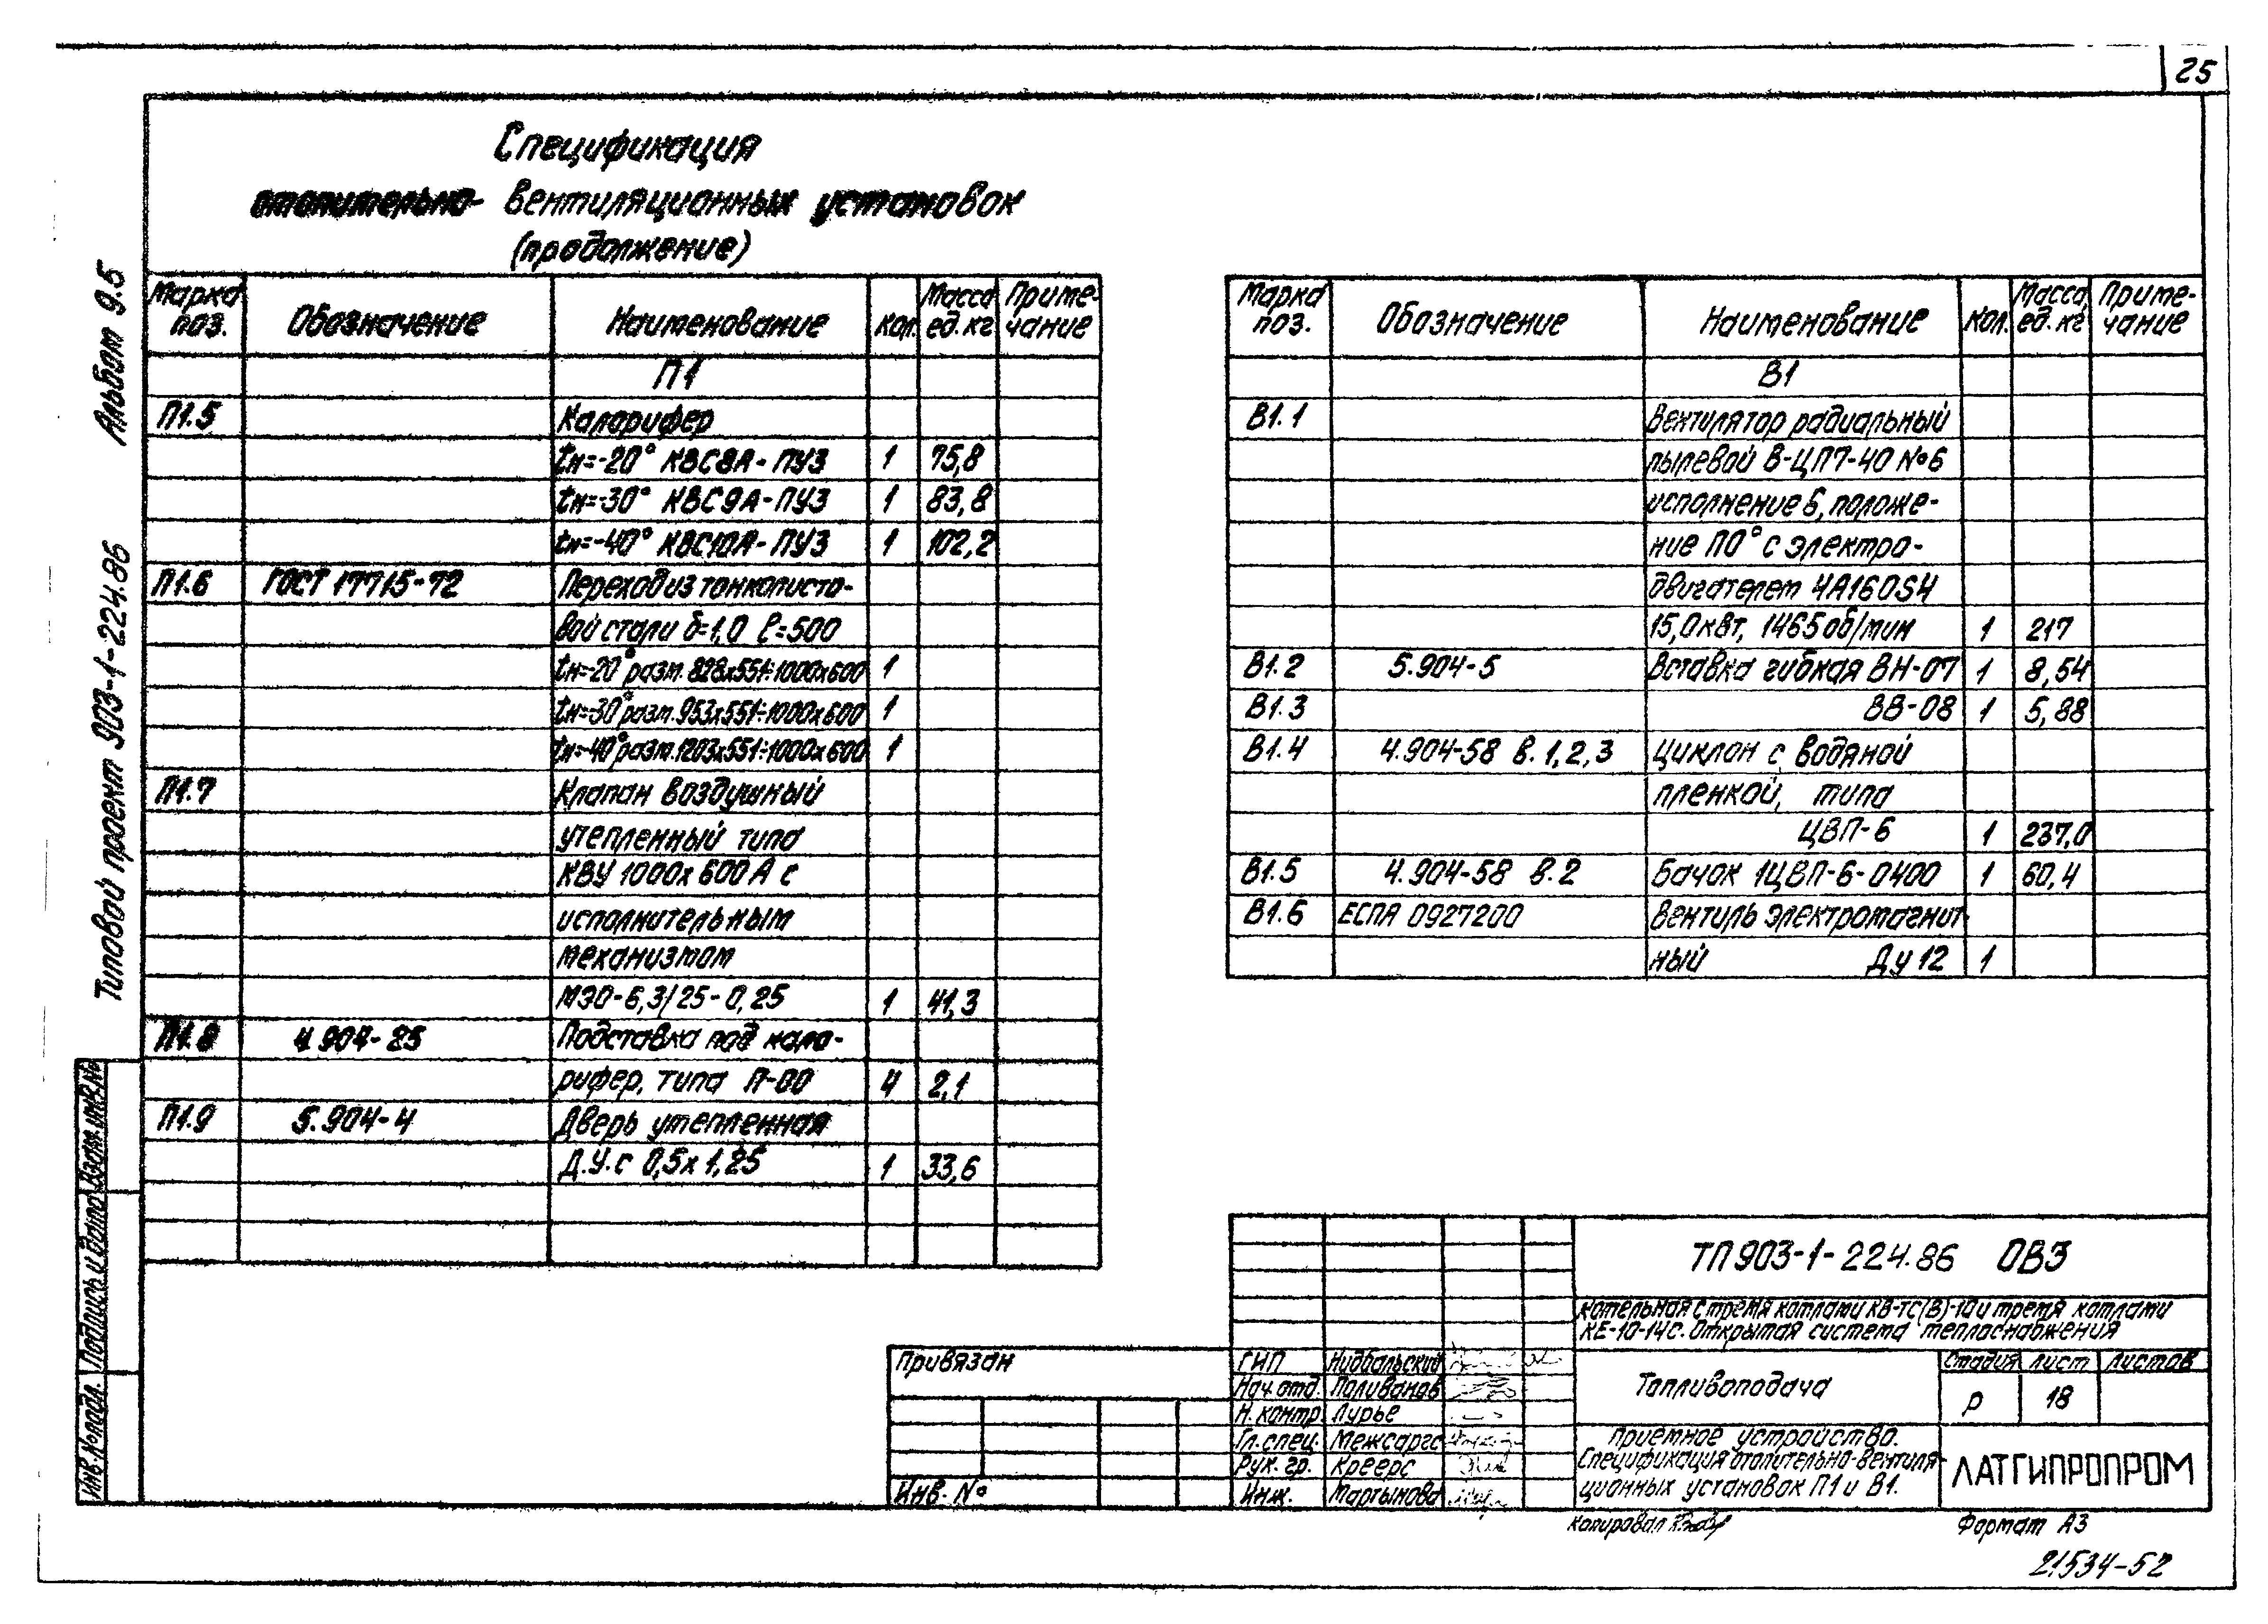 25
Спецификация
отопительно- вентиляционных установок
(продолжение)
Альбом 9.5
Типовой проект 903-1-224.86
Марка поз. Обозначение Наименование Кол. Масса ед. кг Приме-чание
П1
П1.5 Калорифер
tн=-20° КВС8А-ПУЗ 1 75,8
tн=-30° КВС9А-ПУЗ 1 83,8
tн=-40° КВС10А-ПУЗ 1 102,2
П1.6 ГОСТ 17715-72 Переход из тонколисто-
вой стали δ=1,0 ℓ=500
tн=-20° разм. 828х551÷1000х600 1
tн=-30° разм. 953х551÷1000х600 1
tн=-40° разм. 1203х551÷1000х600 1
П1.7 Клапан воздушный
утепленный типа
КВУ 1000х600А с
исполнительным
механизмом
МЭО-6,3/25-0,25 1 41,3
П1.8 4.904-25 Подставка под кало-
рифер, типа 4 2,1
П1.9 5.904-4 Дверь утепленная
Д.У.с 0,5х1,25 1 33,6
Марка поз. Обозначение Наименование Кол. Масса, ед. кг Приме-чание
В1
В1.1 Вентилятор радиальный
пылевой В-ЦП7-40 №6
исполнение 6, положе-
ние П0° с электро-
двигателем 4А160S4
15,0 квт, 1465 об/мин 1 217
В1.2 5.904-5 Вставка гибкая ВН-07 1 8,54
В1.3 ВВ-08 1 5,88
В1.4 4.904-58 в.1,2,3 Циклон с водяной
пленкой, типа
ЦВП-6 1 237,0
В1.5 4.904-58 в.2 Бачок 1ЦВП-6-0400 1 60,4
В1.6 ЕСПА 0927200 Вентиль электромагнит-
ный Ду 12 1
Инв.№подл. Подпись и дата Взам.инв.№
ТП 903-1-224.86 ОВ3
Котельная с тремя котлами КВ-ТС(В)-10 и тремя котлами
КЕ-10-14С. Открытая система теплоснабжения
Привязан
Инв. №
ГИП Нидбальский
Нач.отд. Поливанов
Н.контр. Лурье
Гл.спец. Межсаргс
Рук. гр. Креерс
Инж. Мартынова
Топливоподача
Стадия Лист Листов
Р 18
Приемное устройство.
Спецификация отопительно-вентиля-
ционных установок П1 и В1.
ЛАТГИПРОПРОМ
Копировал
Формат А3
21534-52